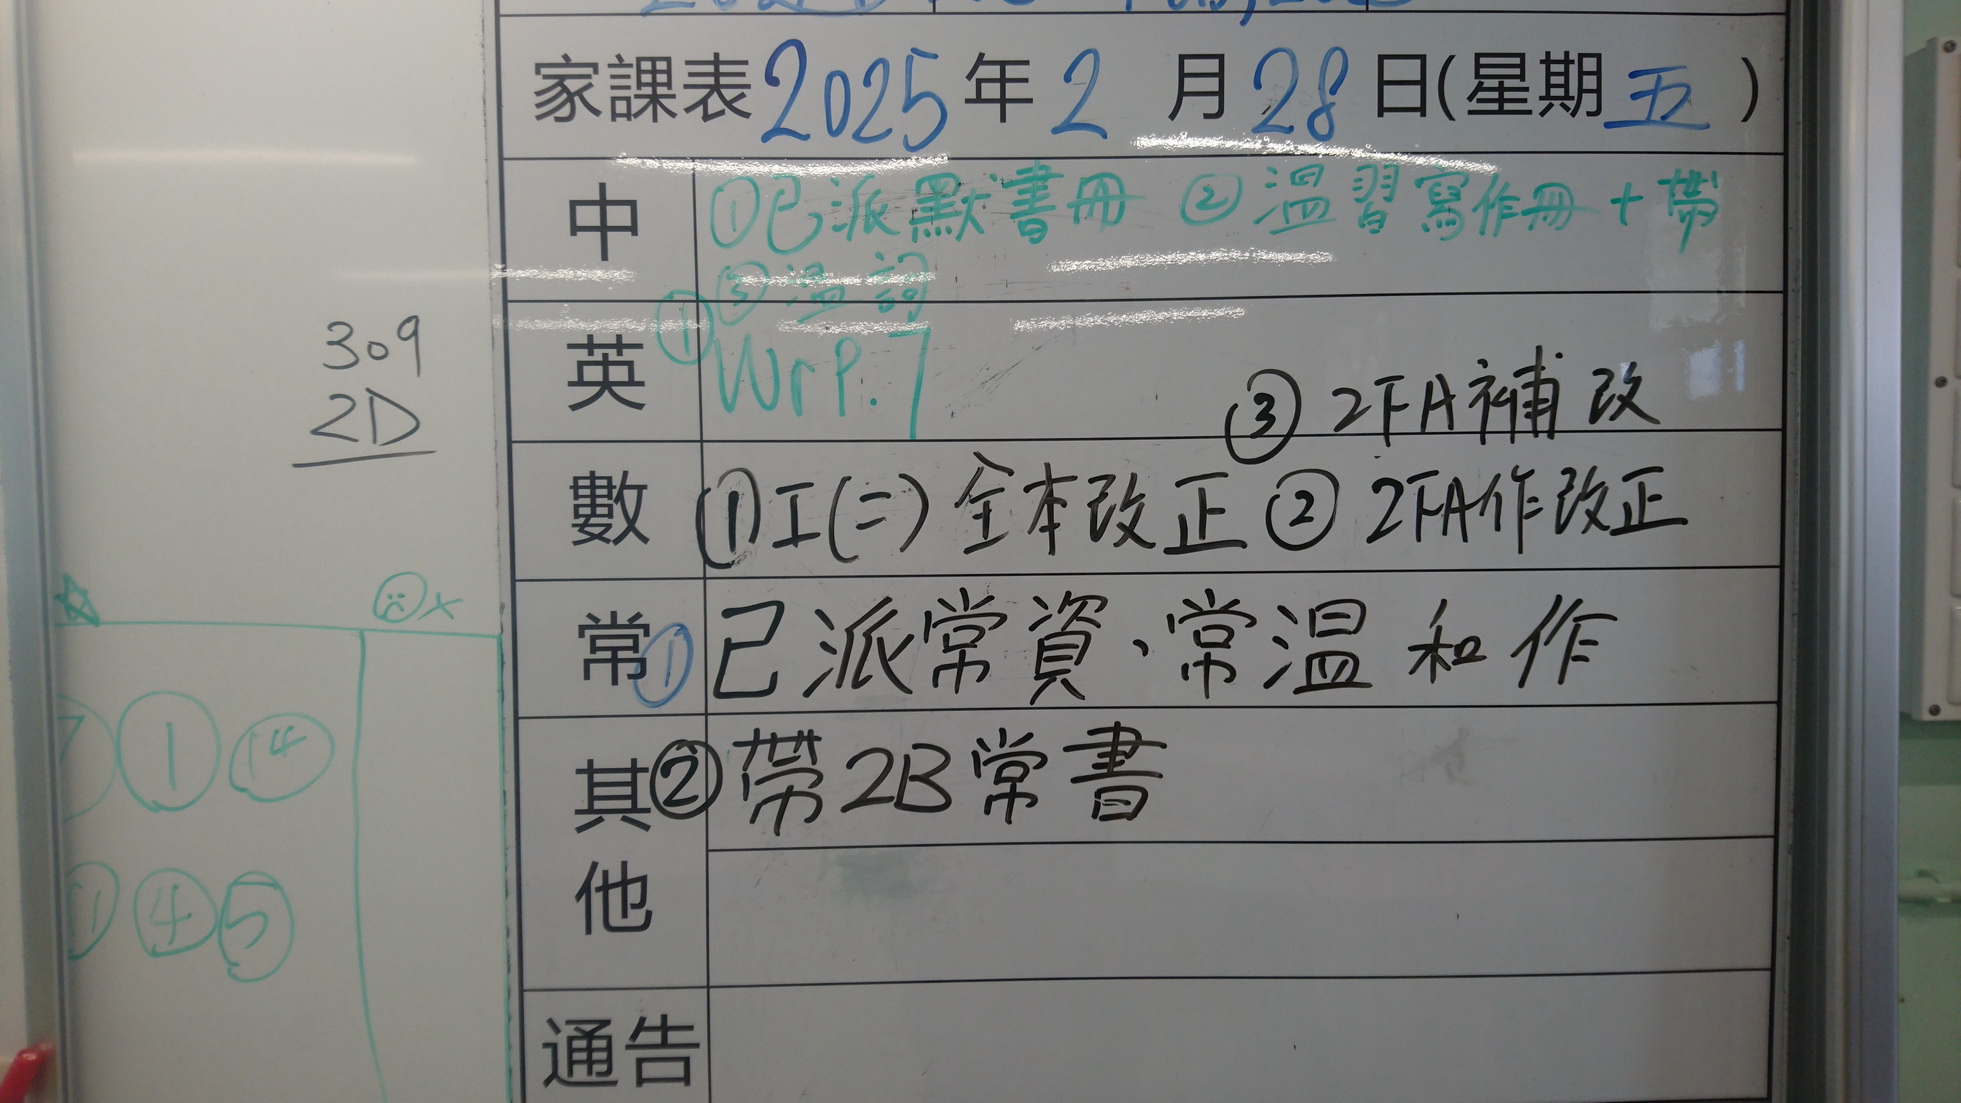 家課表2025年2月28日(星期五)
中 ①已派默書冊 ②溫習寫作冊+帶
③溫詞
英 ① Wr P.7
③ 2FA補改
數 ①工(二)全本改正 ② 2FA作改正
常 ① 已派常資、常溫和作
其他 ② 帶2B常書
通告
309
2D
☆ ☹×
7 ① ⑭
① ④ ⑤